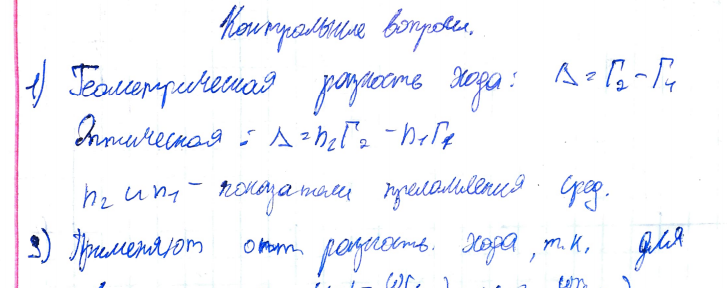 Контрольные вопросы.
1) Геометрическая разность хода: Δ = Г₂ - Г₁
Оптическая: Δ = n₂Г₂ - n₁Г₁
n₂ и n₁ - показатели преломления сред.
3) Применяют опт разность хода, т.к. для